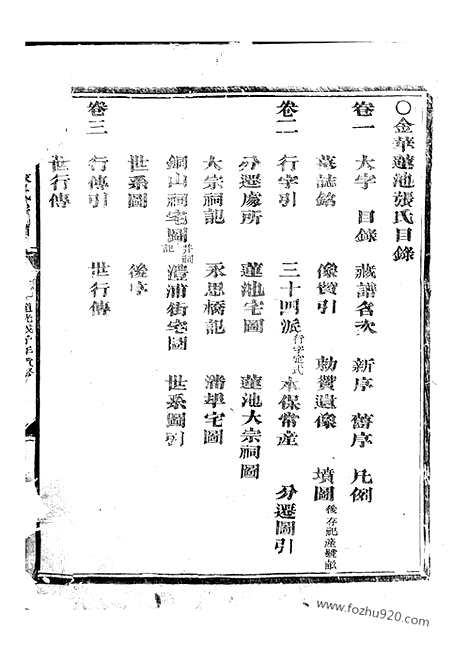 ○金華蓮池張氏目錄
卷一 大字 目錄 藏譜名次 新序 舊序 凡例
墓誌銘 像贊引 勅贊遺像 墳圖後存祀產
卷二 行字引 三十四派行字定式 永保常產 分遷圖引
分遷處所 蓮池宅圖 蓮池大宗祠圖
大宗祠記 永思橋記 浦塘宅圖
銅山祠宅圖并祠記 澧浦街宅圖 世系圖引
世系圖 後序
卷三 行傳引 世行傳
世行傳
www.fozhu920.com